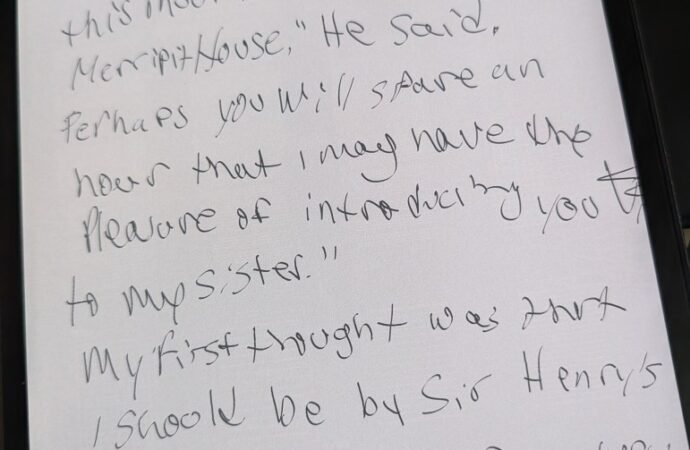 this
Merripit House," He said.
Perhaps you will spare an
hour that I may have the
Pleasure of introducing you
to my sister."
My first thought was that
I should be by Sir Henry's